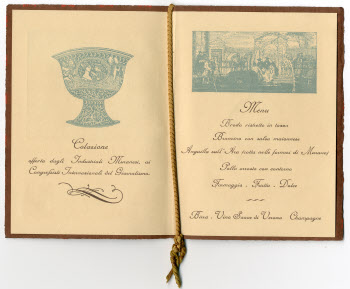 Colazione
offerta dagli Industriali Muranesi, ai
Congressisti Internazionali del
Menu
Brodo ristretto in tazza
con salsa
Anguilla sull' Ara cotta nelle fornaci di Murano
Pollo arrosto con contorno
Formaggio - Frutta - Dolce
Vino Champagne